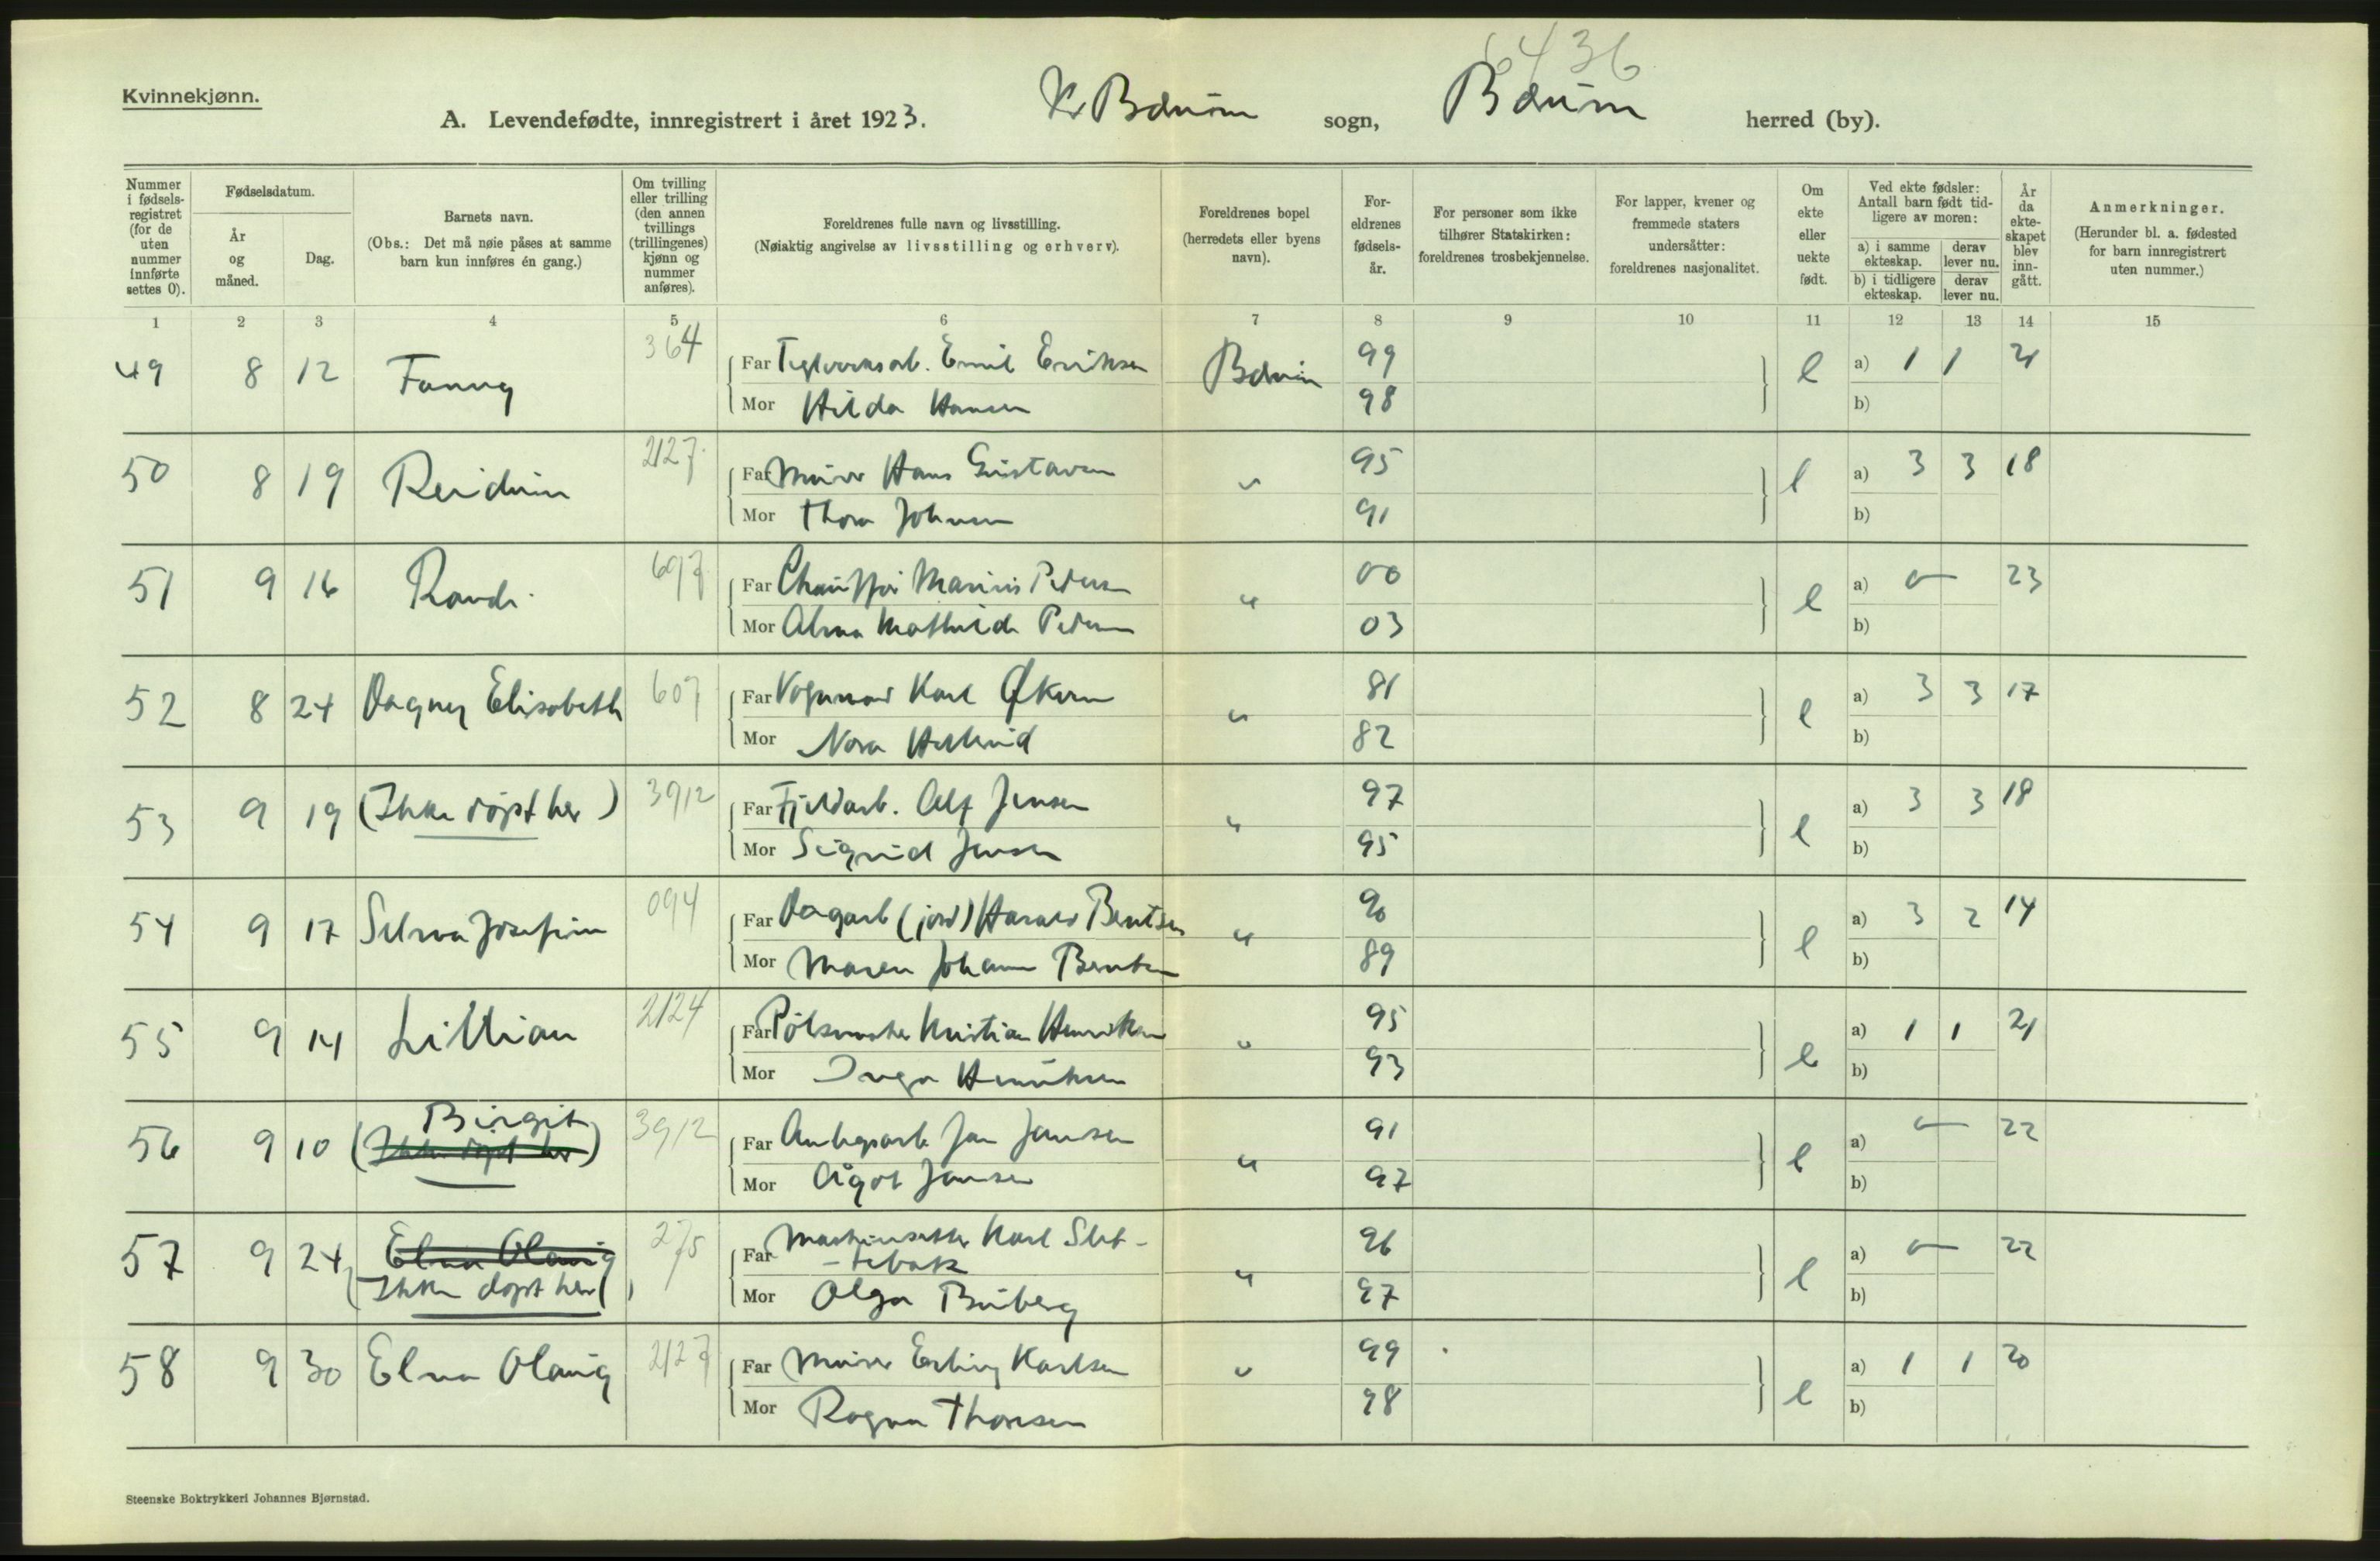 6436
Kvinnekjønn.
A. Levendefødte, innregistrert i året 1923. V. Bærum sogn, Bærum herred (by).
Nummer i fødsels-registret (for de uten nummer innførte settes 0).
Fødselsdatum.
År og måned.
Dag.
Barnets navn.
(Obs.: Det må nøie påses at samme barn kun innføres én gang.)
Om tvilling eller trilling (den annen tvillings (trillingenes) kjønn og nummer anføres).
Foreldrenes fulle navn og livsstilling.
(Nøiaktig angivelse av livsstilling og erhverv).
Foreldrenes bopel (herredets eller byens navn).
For-eldrenes fødsels-år.
For personer som ikke tilhører Statskirken: foreldrenes trosbekjennelse.
For lapper, kvener og fremmede staters undersåtter: foreldrenes nasjonalitet.
Om ekte eller uekte født.
Ved ekte fødsler: Antall barn født tid-ligere av moren:
a) i samme ekteskap.
derav lever nu.
b) i tidligere ekteskap.
derav lever nu.
År da ekte-skapet blev inn-gått.
Anmerkninger.
(Herunder bl. a. fødested for barn innregistrert uten nummer.)
1 2 3 4 5 6 7 8 9 10 11 12 13 14 15
49 8 12 Fanny 364 Far Teglverksarb. Emil Eriksen Bærum 99 e a) 1 1 21
Mor Hilda Hansen 98 b)
50 8 19 Reidun 2127 Far Murer Hans Gustavsen " 95 e a) 3 3 18
Mor Thora Johnsen 91 b)
51 9 16 Randi 697 Far Chauffør Marius Petersen " 00 e a) 0 — 23
Mor Alma Mathilde Petersen 03 b)
52 8 24 Dagny Elisabeth 607 Far Vognmand Karl Økern " 81 e a) 3 3 17
Mor Nora 82 b)
53 9 19 (Ikke døpt her) 3912 Far Fjeldarb. Alf Jensen " 97 e a) 3 3 18
Mor Sigrid Jensen 95 b)
54 9 17 Selma Josefine 094 Far Dagarb (jord) Harald Bentsen " 90 e a) 3 2 14
Mor Maren Johanne Bentsen 89 b)
55 9 14 Lillian 2124 Far Pølsemaker Kristian Henriksen " 95 e a) 1 1 21
Mor Inga Henriksen 93 b)
56 9 10 Birgit 3912 Far Anlegsarb Jan Jansen " 91 e a) 0 — 22
(Ikke døpt her)
Mor Ågot Jansen 97 b)
57 9 24 Elna Olaug 275 Far Maskinsetter Karl Slet- " 96 e a) 0 — 22
(Ikke døpt her) -tebak
Mor Olga Buberg 97 b)
58 9 30 Elna Olaug 2127 Far Murer Erling Karlsen " 99 e a) 1 1 20
Mor Ragna Thoresen 98 b)
Steenske Boktrykkeri Johannes Bjørnstad.